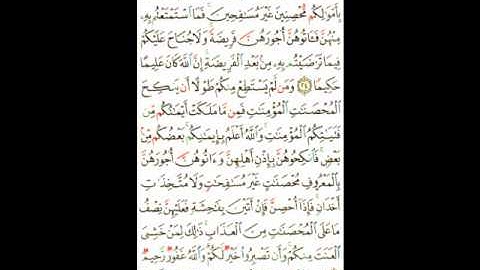 بِأَمْوَٰلِكُم مُّحْصِنِينَ غَيْرَ مُسَٰفِحِينَ ۚ فَمَا ٱسْتَمْتَعْتُم بِهِۦ
مِنْهُنَّ فَـَٔاتُوهُنَّ أُجُورَهُنَّ فَرِيضَةً ۚ وَلَا جُنَاحَ عَلَيْكُمْ
فِيمَا تَرَٰضَيْتُم بِهِۦ مِنۢ بَعْدِ ٱلْفَرِيضَةِ ۚ إِنَّ ٱللَّهَ كَانَ عَلِيمًا
حَكِيمًا ٢٤ وَمَن لَّمْ يَسْتَطِعْ مِنكُمْ طَوْلًا أَن يَنكِحَ
ٱلْمُحْصَنَٰتِ ٱلْمُؤْمِنَٰتِ فَمِن مَّا مَلَكَتْ أَيْمَٰنُكُم مِّن
فَتَيَٰتِكُمُ ٱلْمُؤْمِنَٰتِ ۚ وَٱللَّهُ أَعْلَمُ بِإِيمَٰنِكُم ۚ بَعْضُكُم مِّنۢ
بَعْضٍ ۚ فَٱنكِحُوهُنَّ بِإِذْنِ أَهْلِهِنَّ وَءَاتُوهُنَّ أُجُورَهُنَّ
بِٱلْمَعْرُوفِ مُحْصَنَٰتٍ غَيْرَ مُسَٰفِحَٰتٍ وَلَا مُتَّخِذَٰتِ
أَخْدَانٍ ۚ فَإِذَآ أُحْصِنَّ فَإِنْ أَتَيْنَ بِفَٰحِشَةٍ فَعَلَيْهِنَّ نِصْفُ
مَا عَلَى ٱلْمُحْصَنَٰتِ مِنَ ٱلْعَذَابِ ۚ ذَٰلِكَ لِمَنْ خَشِىَ
ٱلْعَنَتَ مِنكُمْ ۚ وَأَن تَصْبِرُوا۟ خَيْرٌ لَّكُمْ ۗ وَٱللَّهُ غَفُورٌ رَّحِيمٌ